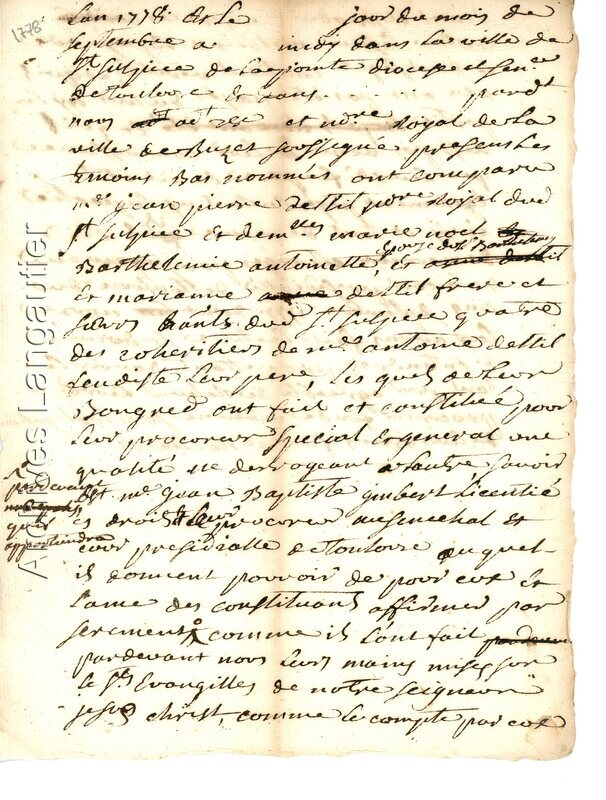 1778
Lan 1778 et le jour du mois de
septembre a midy dans la ville de
St Sulpice de Lapointe dioceze et sen.ée
de toulouse et dans pard.t
nous adt 2e et no.re Royal de La
ville de Buzet soussigné presens Les
temoins Bas nommés ont comparu
m.e jean pierre destil no.re Royal dud
St sulpice et dem.lles marie noel
epouze de Sr Barthelemy
Barthelemie antoinette, Et
Et marianne destil frere et
sœurs hânts dud St sulpice quatre
des coheritiers de m.e antoine destil
feudiste Leur pere, les quels de Leur
Bongred ont fait et constitué pour
Leur procureur special et general une
qualité ne derrogeant a lautre savoir
Est m.e jean Baptiste gimbert Licentié
es droits Leur procureur au senechal et
cour presidialle de toulouse auquel
il donnent pouvoir de pour eux et
lame des constituans affirmer par
serement comme ils L'ont fait
pardevant nous Leurs mains mises sur
Le Sts Evangilles de notre seigneur
jesus christ, comme Le compte par eux
pardevant
qu'il
appartiendra
Archives Langautier